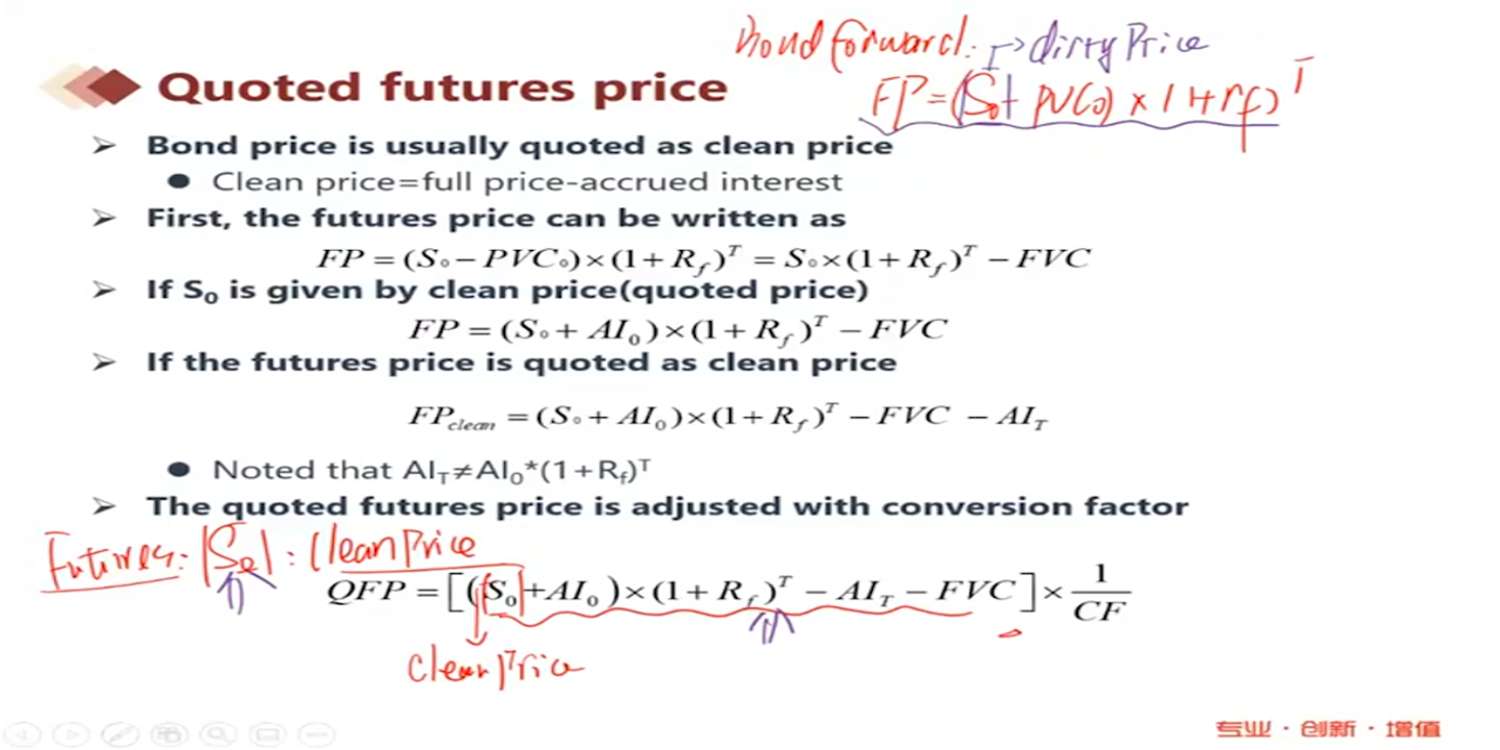 Bond forward: → dirty Price
FP = (S₀ + PV(0) × 1+rf)ᵀ
Quoted futures price
➢ Bond price is usually quoted as clean price
● Clean price=full price-accrued interest
➢ First, the futures price can be written as
FP = (S₀ − PVC₀)×(1+R_f)ᵀ = S₀×(1+R_f)ᵀ − FVC
➢ If S₀ is given by clean price(quoted price)
FP = (S₀ + AI₀)×(1+R_f)ᵀ − FVC
➢ If the futures price is quoted as clean price
FP_clean = (S₀ + AI₀)×(1+R_f)ᵀ − FVC − AI_T
● Noted that AI_T≠AI₀*(1+R_f)ᵀ
➢ The quoted futures price is adjusted with conversion factor
Futures: |S₀| : Clean Price
QFP = [(S₀+AI₀)×(1+R_f)ᵀ − AI_T − FVC]× 1/CF
Clean Price
专业·创新·增值